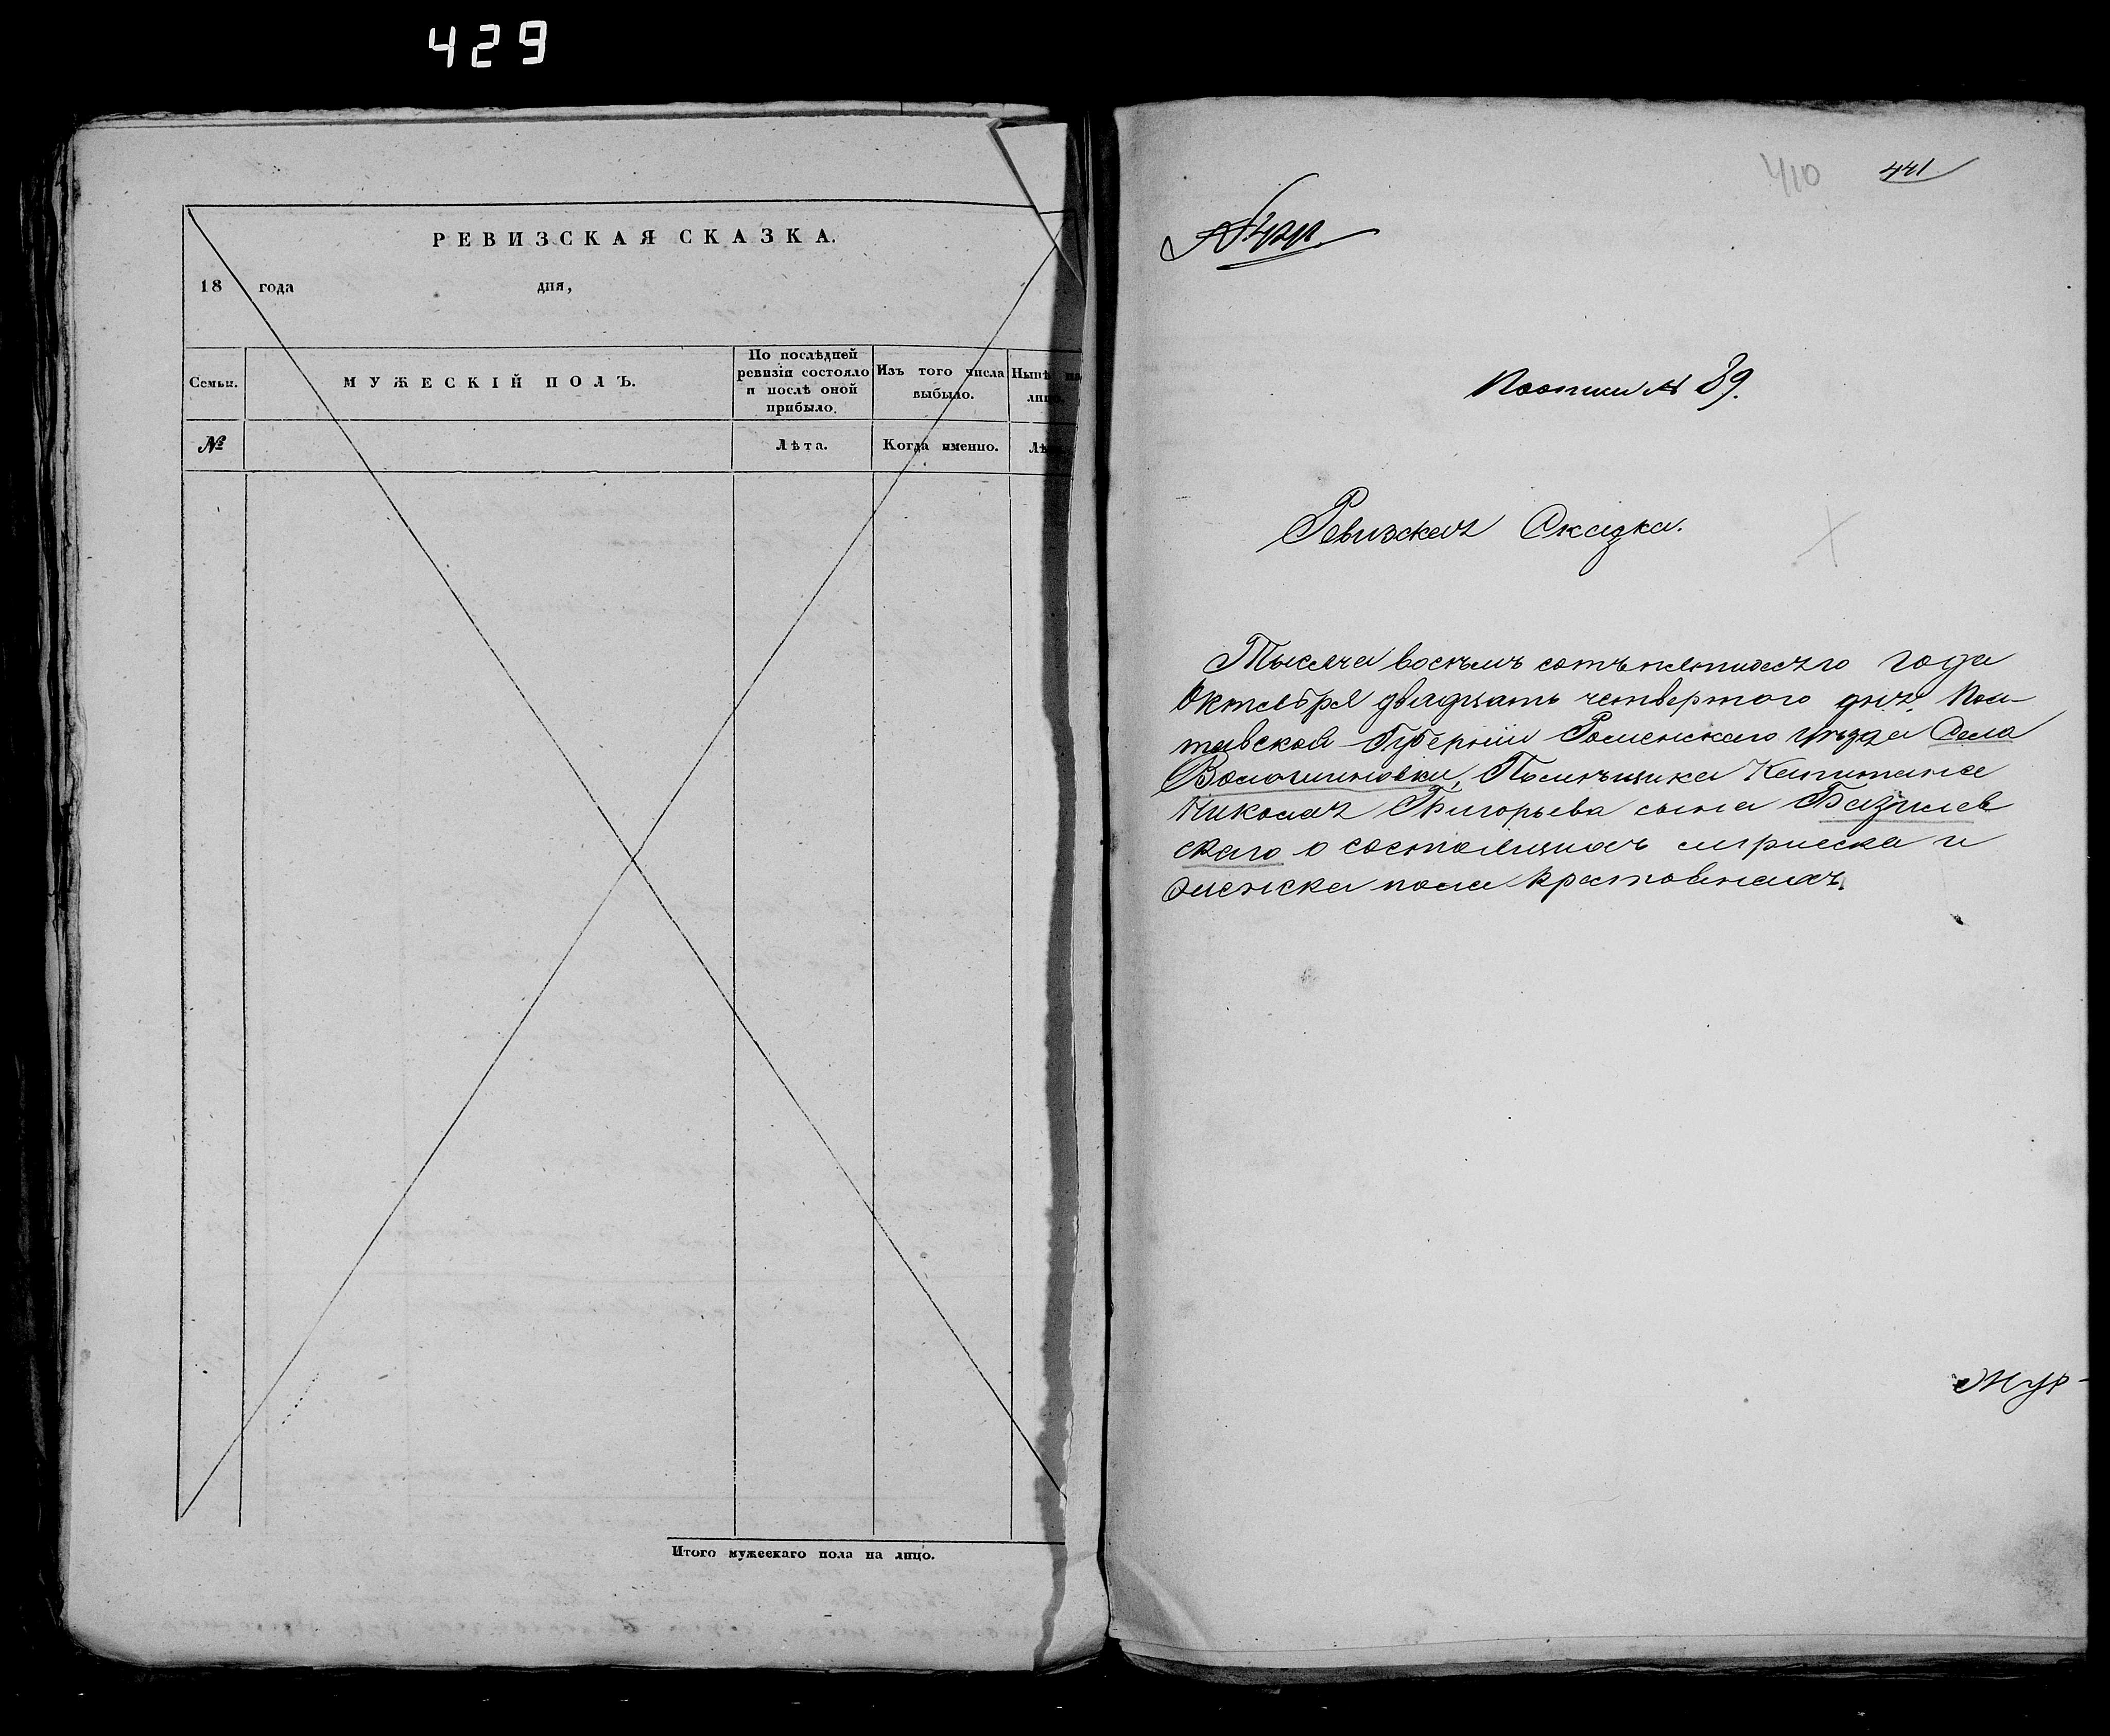 429
РЕВИЗСКАЯ СКАЗКА.
18 года дня,
Семьи.
МУЖЕСКІЙ ПОЛЪ.
По послѣдней ревизіи состояло и послѣ оной прибыло.
Изъ того числа выбыло.
Нынѣ на лицо.
№
Лѣта.
Когда именно.
Лѣ
Итого мужескаго пола на лицо.
410 441
По описи № 39.
Ревизская Сказка.
Тысяча восемъ сотъ пятидесятого года
Октября двадцать четвертого дня, Пол-
тавской Губерніи Роменскаго уѣзда Села
Волошиновки, Помѣщика Капитана
Николая Григорьева сына Базилев
скаго о состоящихъ мужеска и
женска пола крестьянахъ.